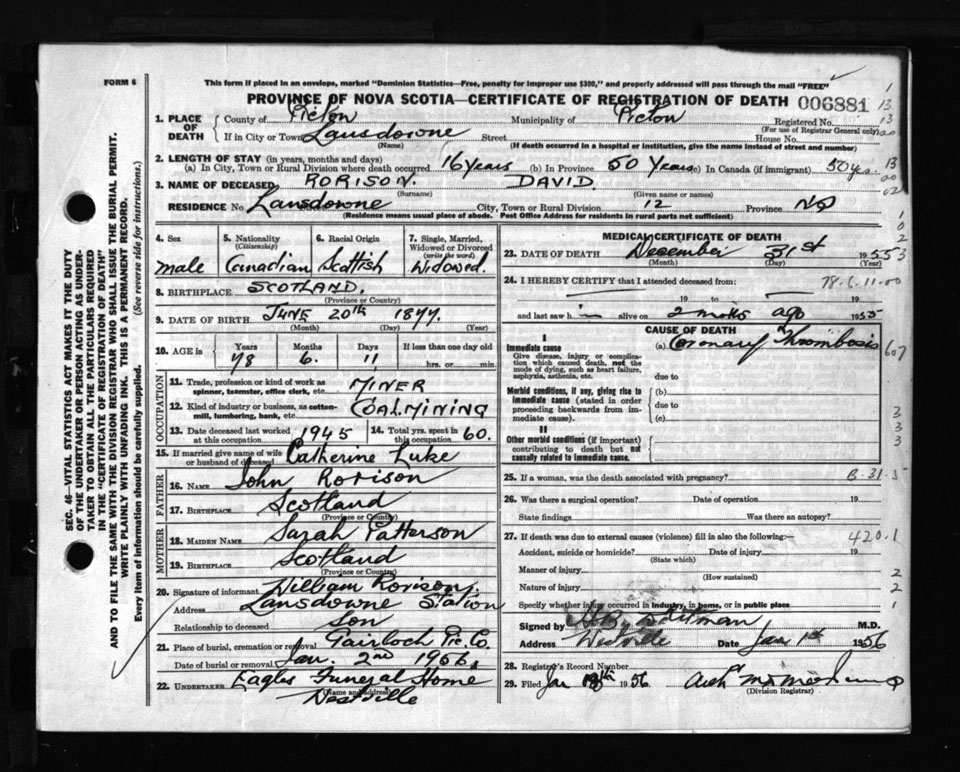 FORM 6
This form if placed in an envelope, marked "Dominion Statistics—Free, penalty for improper use $300," and properly addressed will pass through the mail "FREE"
PROVINCE OF NOVA SCOTIA—CERTIFICATE OF REGISTRATION OF DEATH 006881
1. PLACE OF DEATH
County of Pictou Municipality of Pictou Registered No.
(For use of Registrar General only)
If in City or Town Lansdowne Street House No.
(Name) (If death occurred in a hospital or institution, give the name instead of street and number)
2. LENGTH OF STAY (in years, months and days)
(a) In City, Town or Rural Division where death occurred 16 years (b) In Province 50 Years (c) In Canada (if immigrant) 50 y
3. NAME OF DECEASED RORISON. DAVID
(Surname) (Given name or names)
RESIDENCE No. Lansdowne City, Town or Rural Division 12 Province NS
(Residence means usual place of abode. Post Office Address for residents in rural parts not sufficient)
4. Sex male
5. Nationality (Citizenship) Canadian
6. Racial Origin Scottish
7. Single, Married, Widowed or Divorced (write the word) Widowed.
8. BIRTHPLACE SCOTLAND.
(Province or Country)
9. DATE OF BIRTH JUNE 20th 1877.
(Month) (Day) (Year)
10. AGE is Years 78 Months 6. Days 11 If less than one day old hrs. or min.
OCCUPATION
11. Trade, profession or kind of work as spinner, teamster, office clerk, etc. MINER
12. Kind of industry or business, as cotton-mill, lumbering, bank, etc. COALMINING
13. Date deceased last worked at this occupation 1945
14. Total yrs. spent in this occupation 60.
15. If married give name of wife or husband of deceased Catherine Luke
FATHER
16. NAME John Rorison
17. BIRTHPLACE Scotland
(Province or Country)
MOTHER
18. MAIDEN NAME Sarah Patterson
19. BIRTHPLACE Scotland
(Province or Country)
20. Signature of informant William Rorison
Address Lansdowne Station
Relationship to deceased son
21. Place of burial, cremation or removal Gairloch Pic. Co.
Date of burial or removal Jan. 2nd 1956.
22. UNDERTAKER Eagles Funeral Home
(Name and address) Westville
MEDICAL CERTIFICATE OF DEATH
23. DATE OF DEATH December 31st 1955
(Month) (Day) (Year)
24. I HEREBY CERTIFY that I attended deceased from:
19 to 19
and last saw h im alive on 2 months ago 1955
CAUSE OF DEATH
I
Immediate cause
Give disease, injury or complication which caused death, not the mode of dying, such as heart failure, asphyxia, asthenia, etc.
(a) Coronary Thrombosis
due to
Morbid conditions, if any, giving rise to immediate cause (stated in order proceeding backwards from immediate cause).
(b)
due to
(c)
II
Other morbid conditions (if important) contributing to death but not causally related to immediate cause.
25. If a woman, was the death associated with pregnancy?
26. Was there a surgical operation? Date of operation 19
State findings Was there an autopsy?
27. If death was due to external causes (violence) fill in also the following:— 420.1
Accident, suicide or homicide? Date of injury 19
(State which)
Manner of injury
(How sustained)
Nature of injury
Specify whether injury occurred in industry, in home, or in public place
Signed by Whitman M.D.
Address Westville Date Jan 1st 1956
28. Registrar's Record Number
29. Filed Jan 1956
(Division Registrar)
SEC. 46—VITAL STATISTICS ACT MAKES IT THE DUTY
OF THE UNDERTAKER OR PERSON ACTING AS UNDER-
TAKER TO OBTAIN ALL THE PARTICULARS REQUIRED
IN THE "CERTIFICATE OF REGISTRATION OF DEATH"
AND TO FILE THE SAME WITH THE DIVISION REGISTRAR WHO SHALL ISSUE THE BURIAL PERMIT.
WRITE PLAINLY WITH UNFADING INK. THIS IS A PERMANENT RECORD.
Every item of information should be carefully supplied. (See reverse side for instructions.)